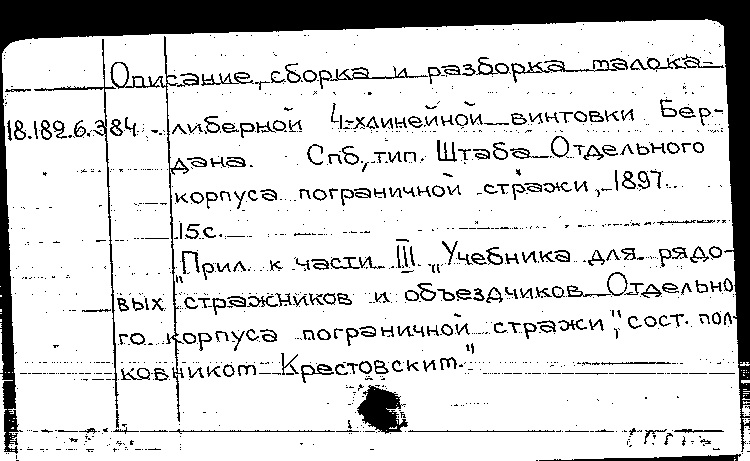 Описание, сборка и разборка малока-
18.182.6.384 - либерной 4-хлинейной винтовки Бер-
дана. Спб, тип. Штаба Отдельного
корпуса пограничной стражи, 1897.
15с.
"Прил. к части III „Учебника для рядо-
вых стражников и объездчиков Отдельно
го корпуса пограничной стражи", сост. пол-
ковником Крестовским."